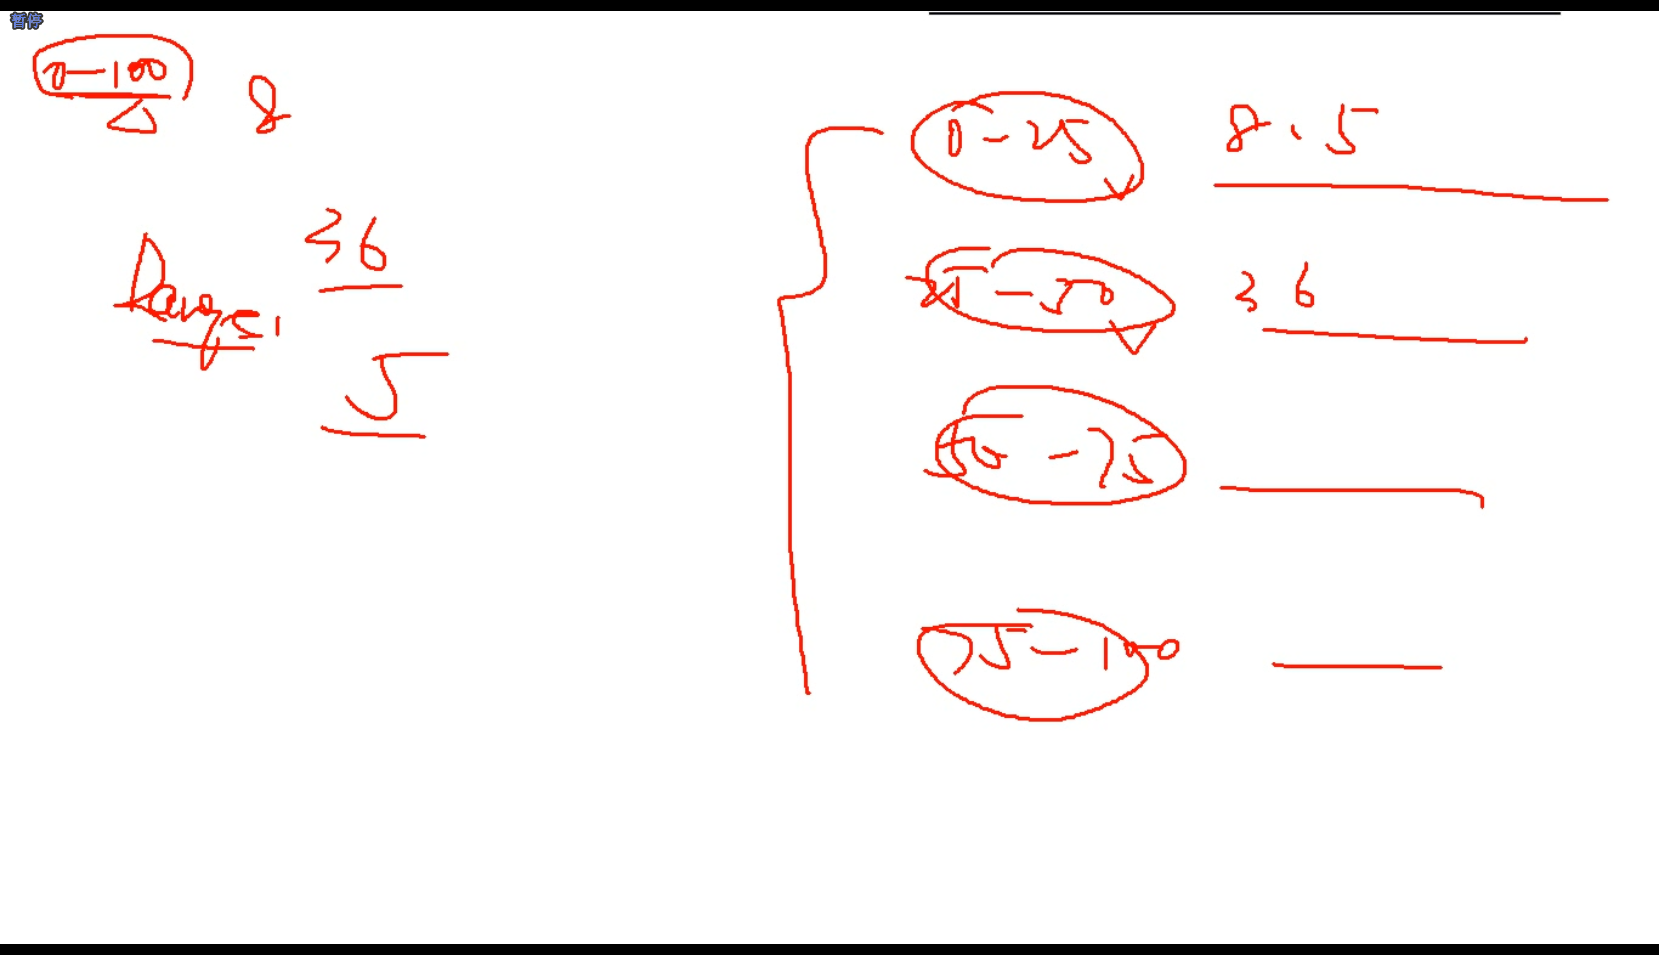 暂停
0-100
8
36
Range
5
0-25 8、5
25-50 36
50-75
75-100